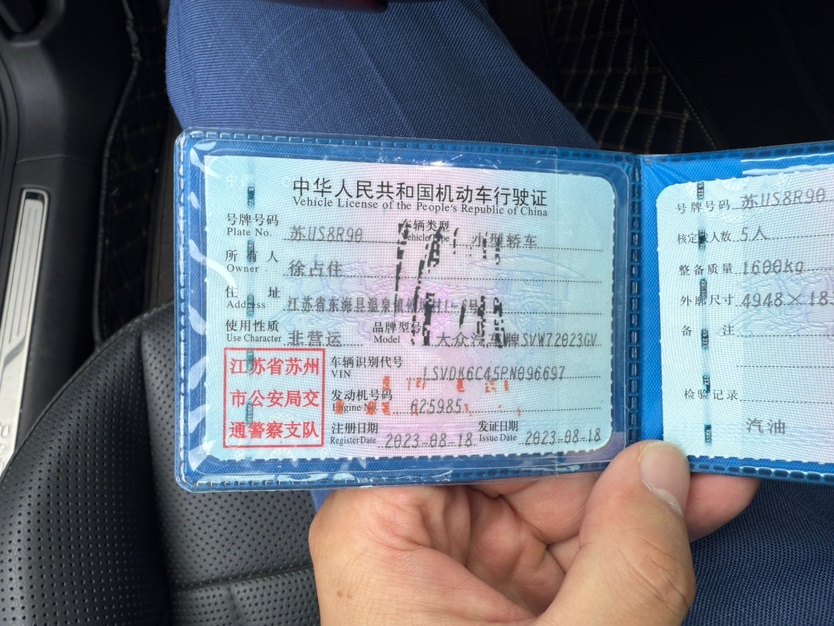 中华人民共和国机动车行驶证
Vehicle License of the People's Republic of China
号牌号码 苏US8R90 车辆类型 小型轿车
Plate No. Vehicle Type
所有人 徐占住
Owner
住址 江苏省东海县温泉镇
Address
使用性质 非营运 品牌型号 大众汽车牌SVW72023GV
Use Character Model
江苏省苏州
市公安局交
通警察支队
车辆识别代号 LSVDK6C45PN096697
VIN
发动机号码 625985
Engine No.
注册日期 2023-08-18 发证日期 2023-08-18
Register Date Issue Date
号牌号码 苏US8R90
核定载人数 5人
整备质量 1600kg
外廓尺寸 4948×18
备注
检验记录
汽油